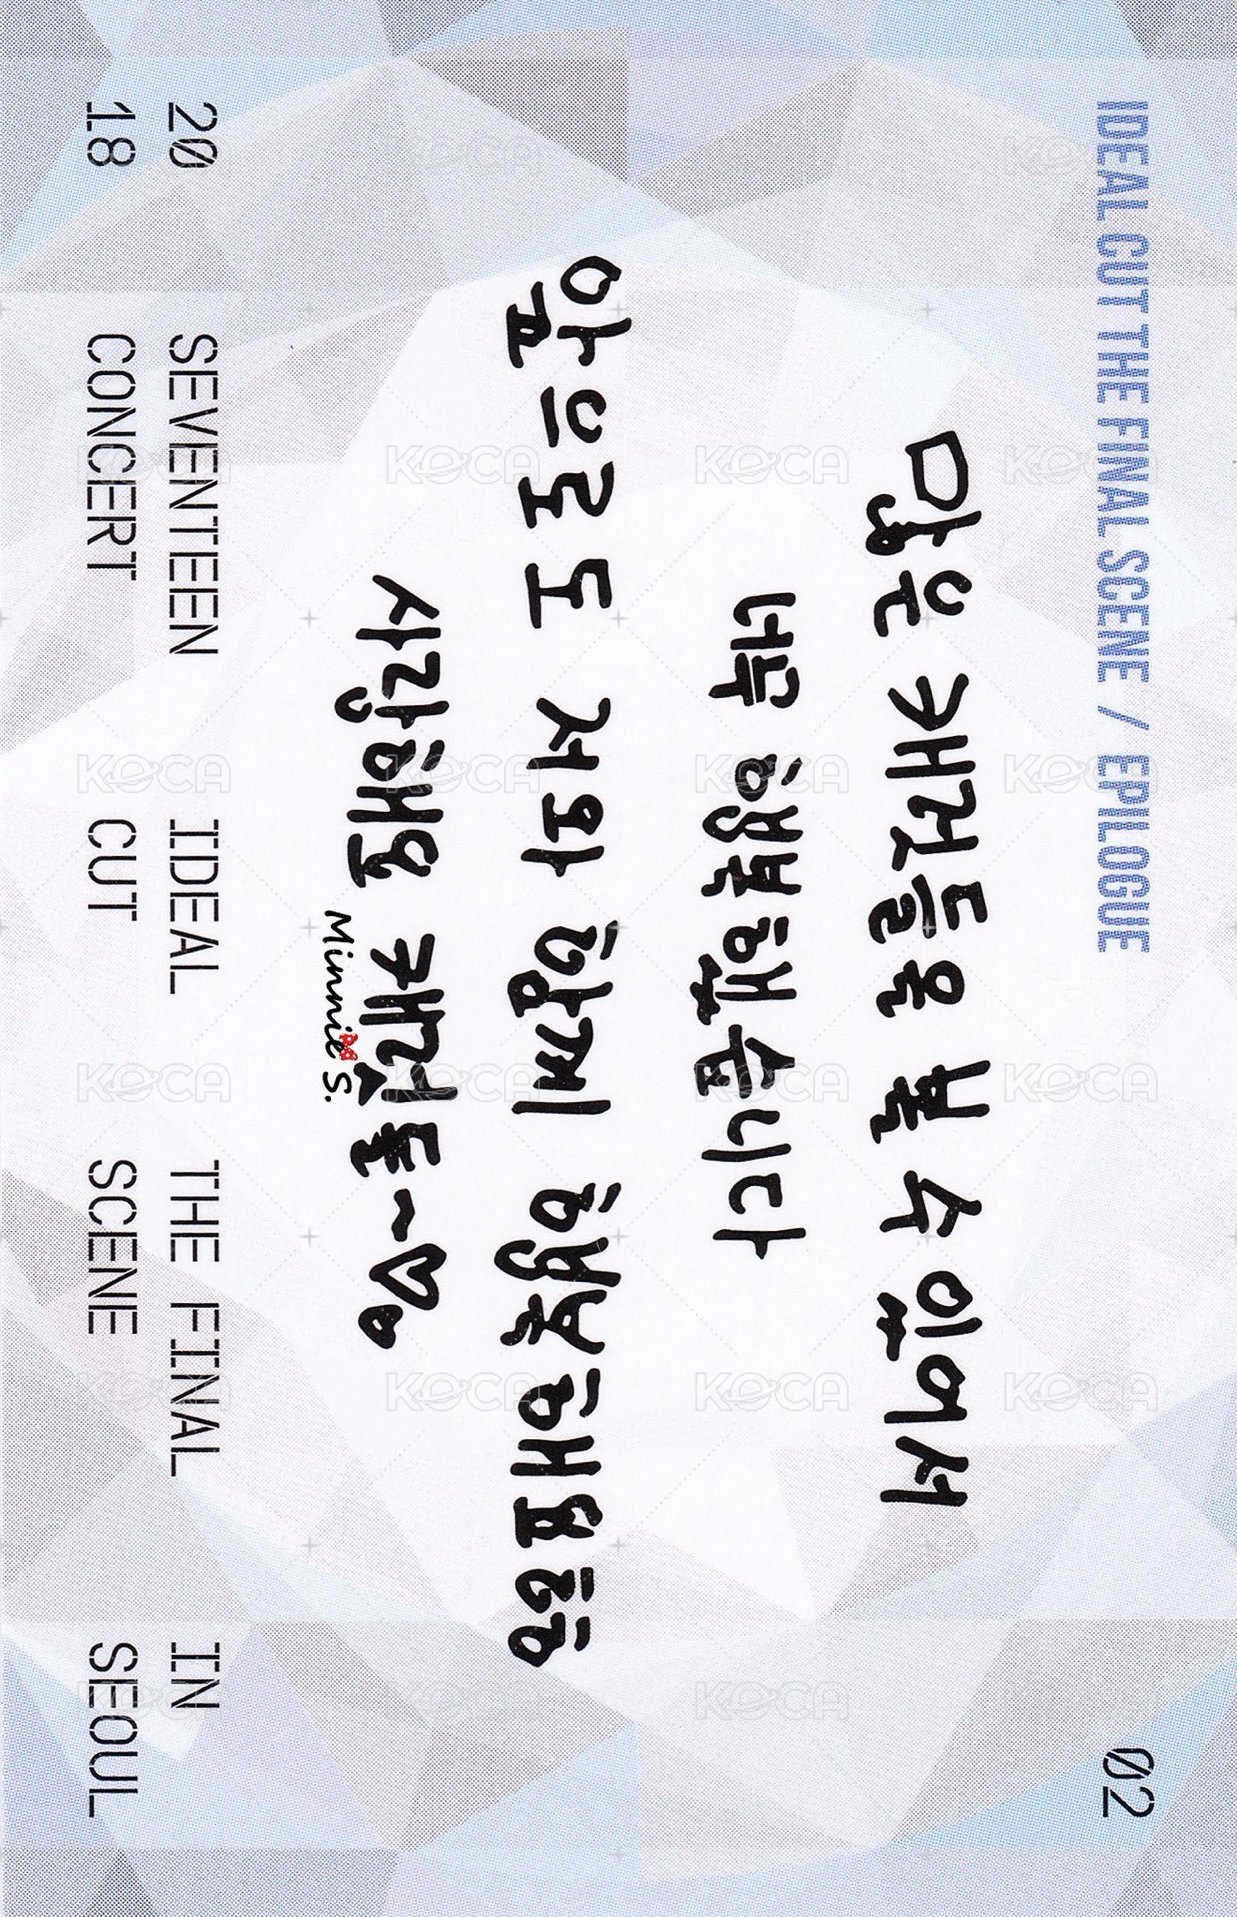 IDEAL CUT THE FINAL SCENE / EPILOGUE
02
많은 캐럿들을 볼 수 있어서
너무 행복했습니다
앞으로도 함께
사랑해요 캐럿들~♡
Minnie S.
20 SEVENTEEN IDEAL THE FINAL IN
18 CONCERT CUT SCENE SEOUL
KOCA